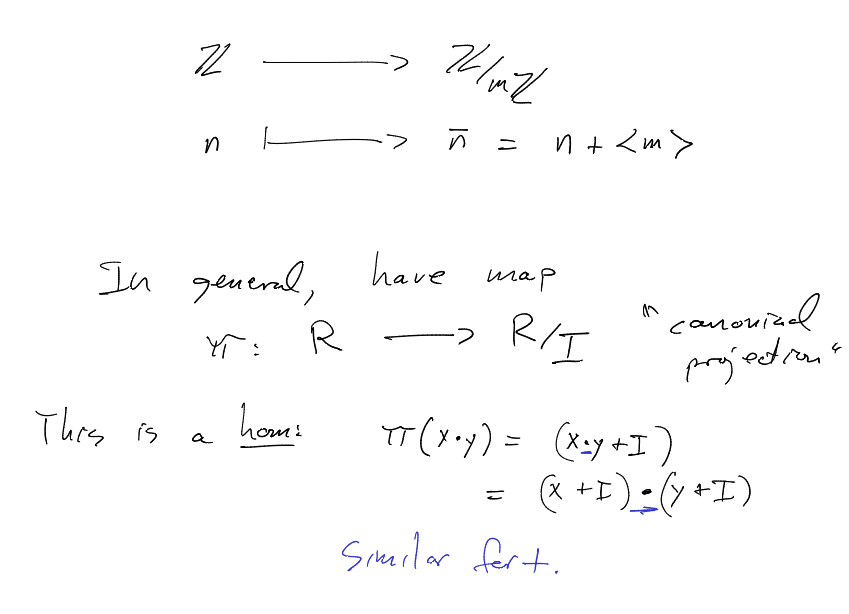 ℤ ⟶ ℤ/mℤ
n ⟼ n̅ = n + <m>
In general, have map
π: R ⟶ R/I "canonical projection"
This is a hom: π(x·y) = (x·y+I)
= (x+I)·(y+I)
Similar for +.